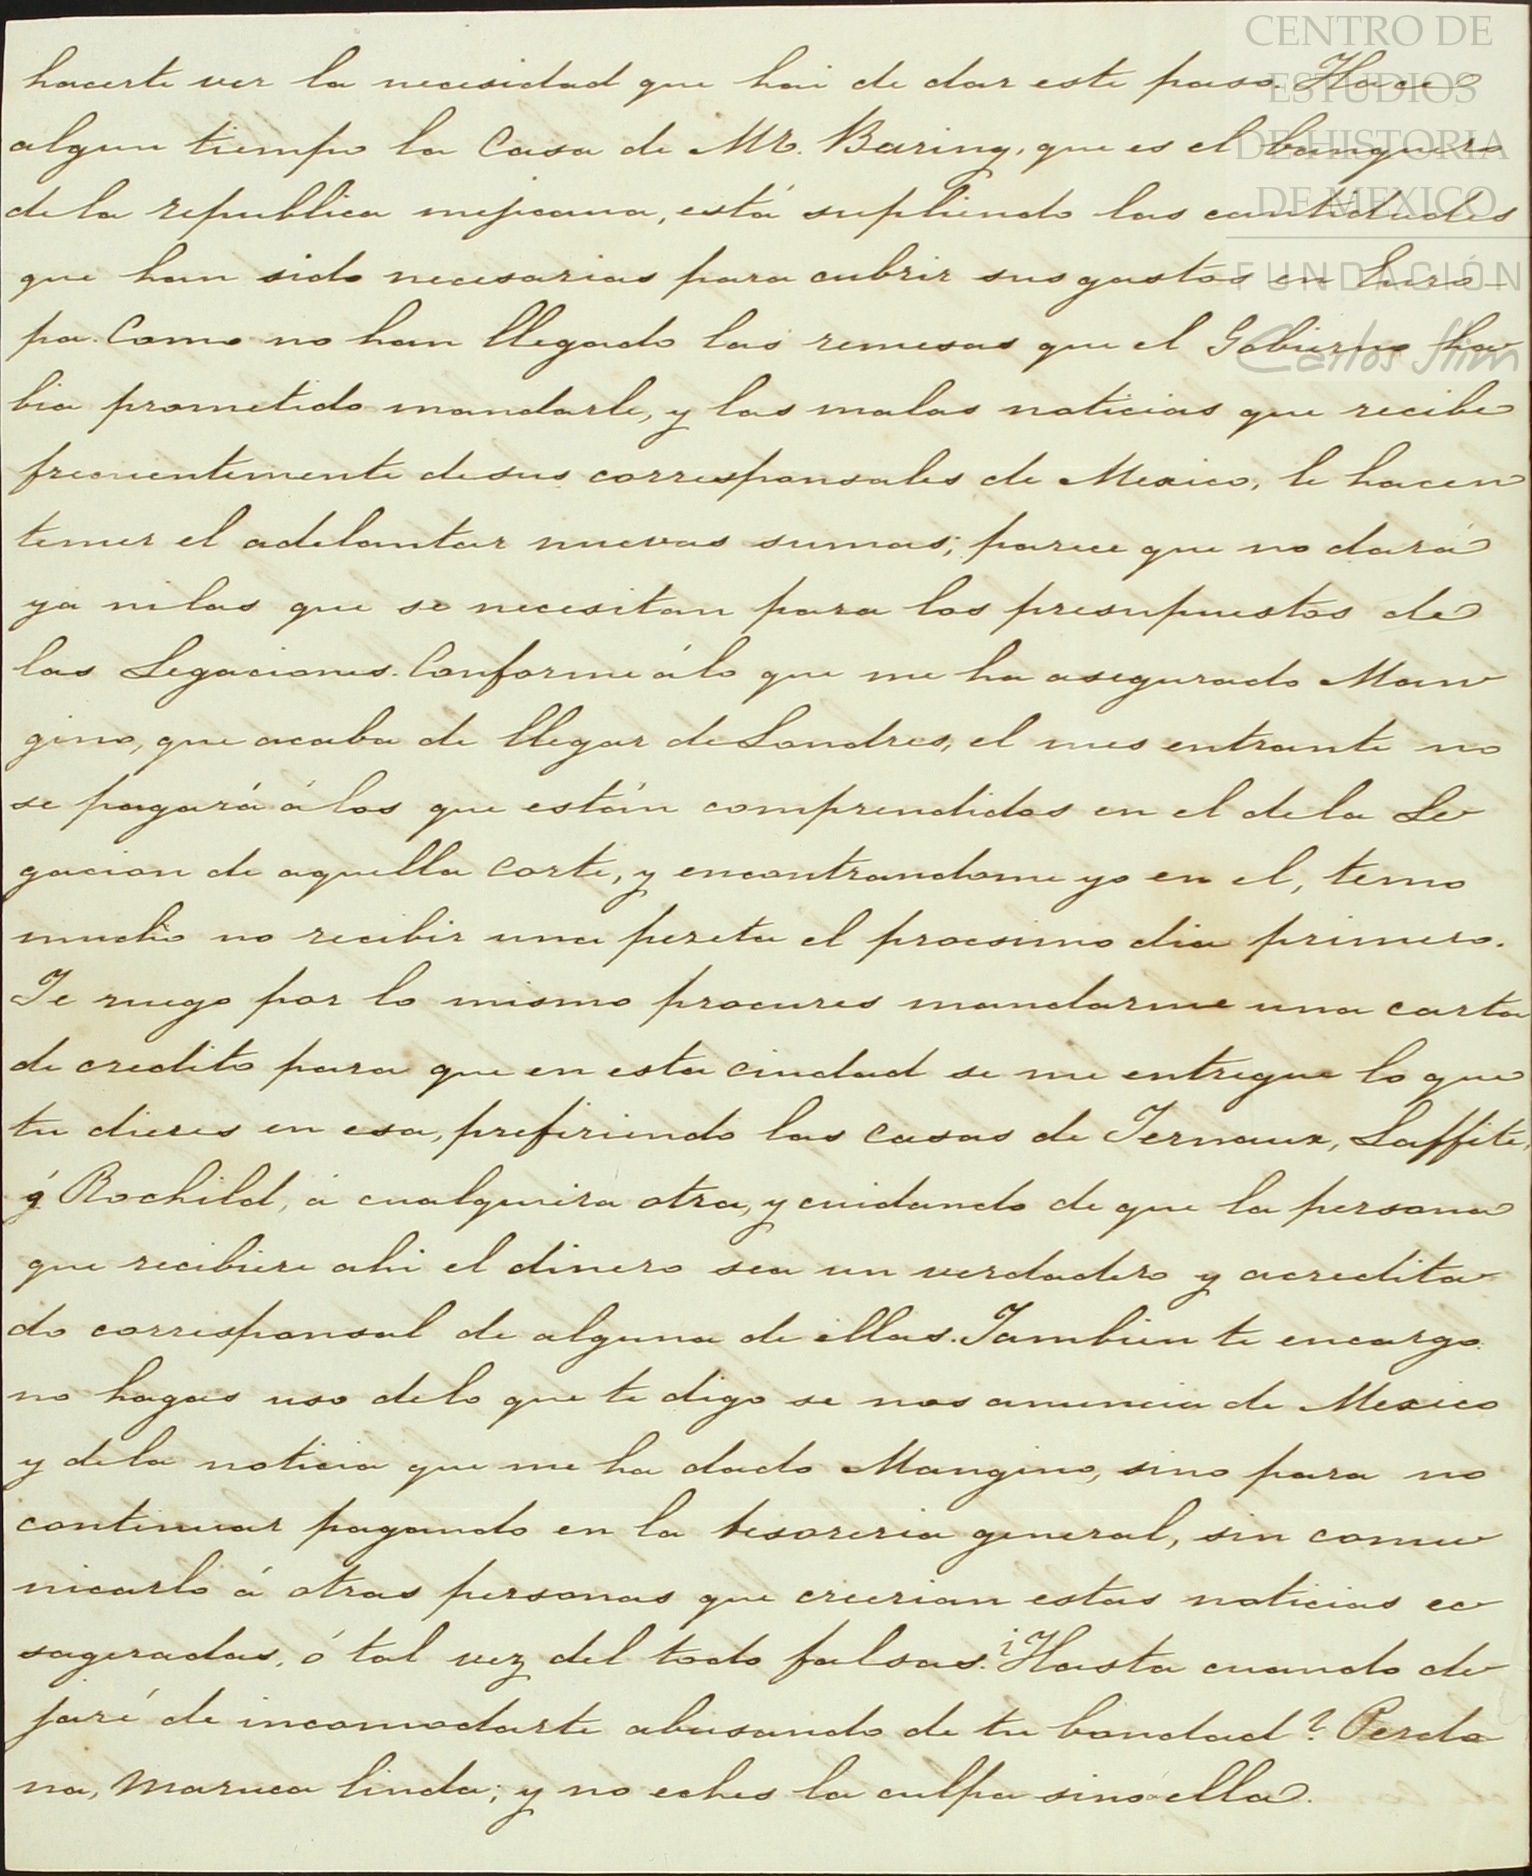 CENTRO DE
ESTUDIOS
DE HISTORIA
DE MEXICO
FUNDACIÓN
Carlos Slim
hacerte ver la necesidad que hai de dar este paso. Hace
algun tiempo la Casa de Mr. Baring, que es el banquero
de la republica mejicana, está supliendo las cantidades
que han sido necesarias para cubrir sus gastos en Euro-
pa. Como no han llegado las remesas que el Gobierno ha-
bia prometido mandarle, y las malas noticias que recibe
frecuentemente de sus corresponsales de Mexico, le hacen
temer el adelantar nuevas sumas; parece que no dará
ya ni las que se necesitan para los presupuestos de
las Legaciones. Conforme á lo que me ha asegurado Man-
gino, que acaba de llegar de Londres, el mes entrante no
se pagará á los que están comprendidos en el de la Le-
gacion de aquella Corte, y encontrandome yo en el, temo
mucho no recibir una peseta el procsimo dia primero.
Te ruego por lo mismo procures mandarme una carta
de credito para que en esta ciudad se me entregue lo que
tu dieres en esa, prefiriendo las casas de Ternaux, Laffite,
ó Rochild, á cualquiera otra, y cuidando de que la persona
que recibiere ahi el dinero sea un verdadero y acredita-
do corresponsal de alguna de ellas. Tambien te encargo
no hagas uso de lo que te digo se nos anuncia de Mexico
y de la noticia que me ha dado Mangino, sino para no
continuar pagando en la tesoreria general, sin comu-
nicarlo á otras personas que creerian estas noticias ec-
sageradas, ó tal vez del todo falsas. ¿Hasta cuando de-
jaré de incomodarte abusando de tu bondad? Perdo
na, Maruca linda; y no eches la culpa sino á ella.